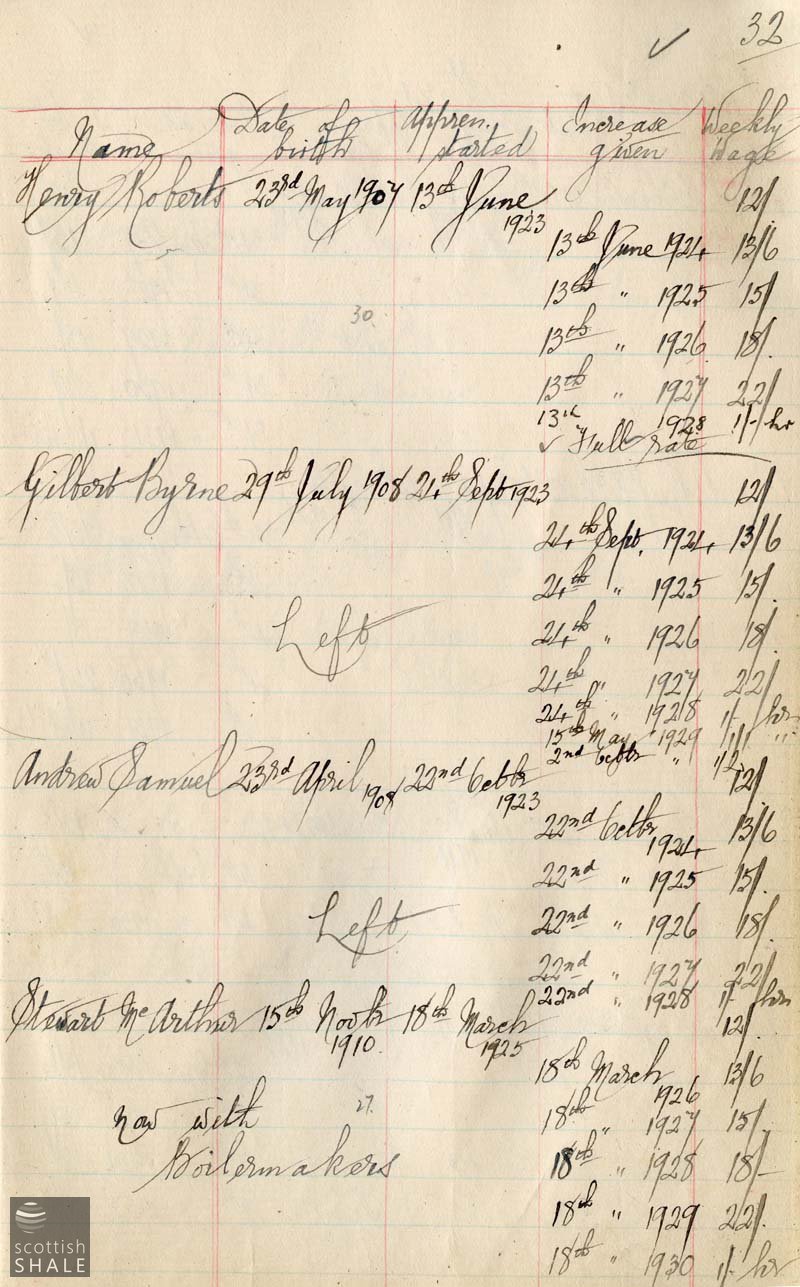 32
Name Date of birth Appren. started Increase given Weekly Wage
Henry Roberts 23rd May 1907 13th June 1923 12/
13th June 1924 13/6
13th " 1925 15/
30.
13th " 1926 18/.
13th " 1927 22/
13th " 1928 1/- hr
✓ Full rate
Gilbert Byrne 29th July 1908 24th Sept 1923 12/
24th Sept. 1924 13/6
24th " 1925 15/.
Left 24th " 1926 18/.
24th " 1927 22/
24th " 1928 1/- hr
15th May 1929 1/1 "
2nd Octbr " 1/2
Andrew Samuel 23rd April 1908 22nd Octbr 1923 12/
22nd Octbr 1924 13/6
22nd " 1925 15/.
Left 22nd " 1926 18/.
22nd " 1927 22/
22nd " 1928 1/- hr
Stewart McArthur 15th Novbr 1910. 18th March 1925 12/.
18th March 1926 13/6
27.
now with 18th " 1927 15/.
Boilermakers 18th " 1928 18/-
18th " 1929 22/.
18th " 1930 1/- hr
scottish
SHALE